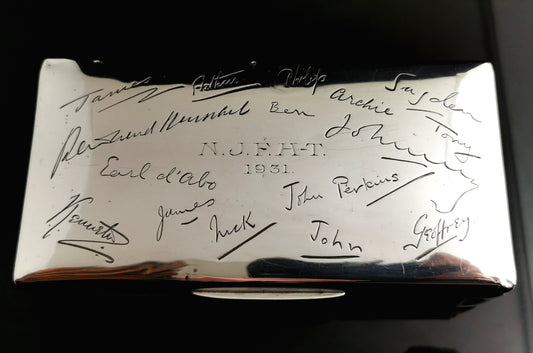 James Arthur Philip Sugden
Bertrand Ben Archie Tony
Johnny
N.J.F.H-T.
1931.
Earl d'Abo
John Perkins
Kenneth James
Jack John Geoffrey